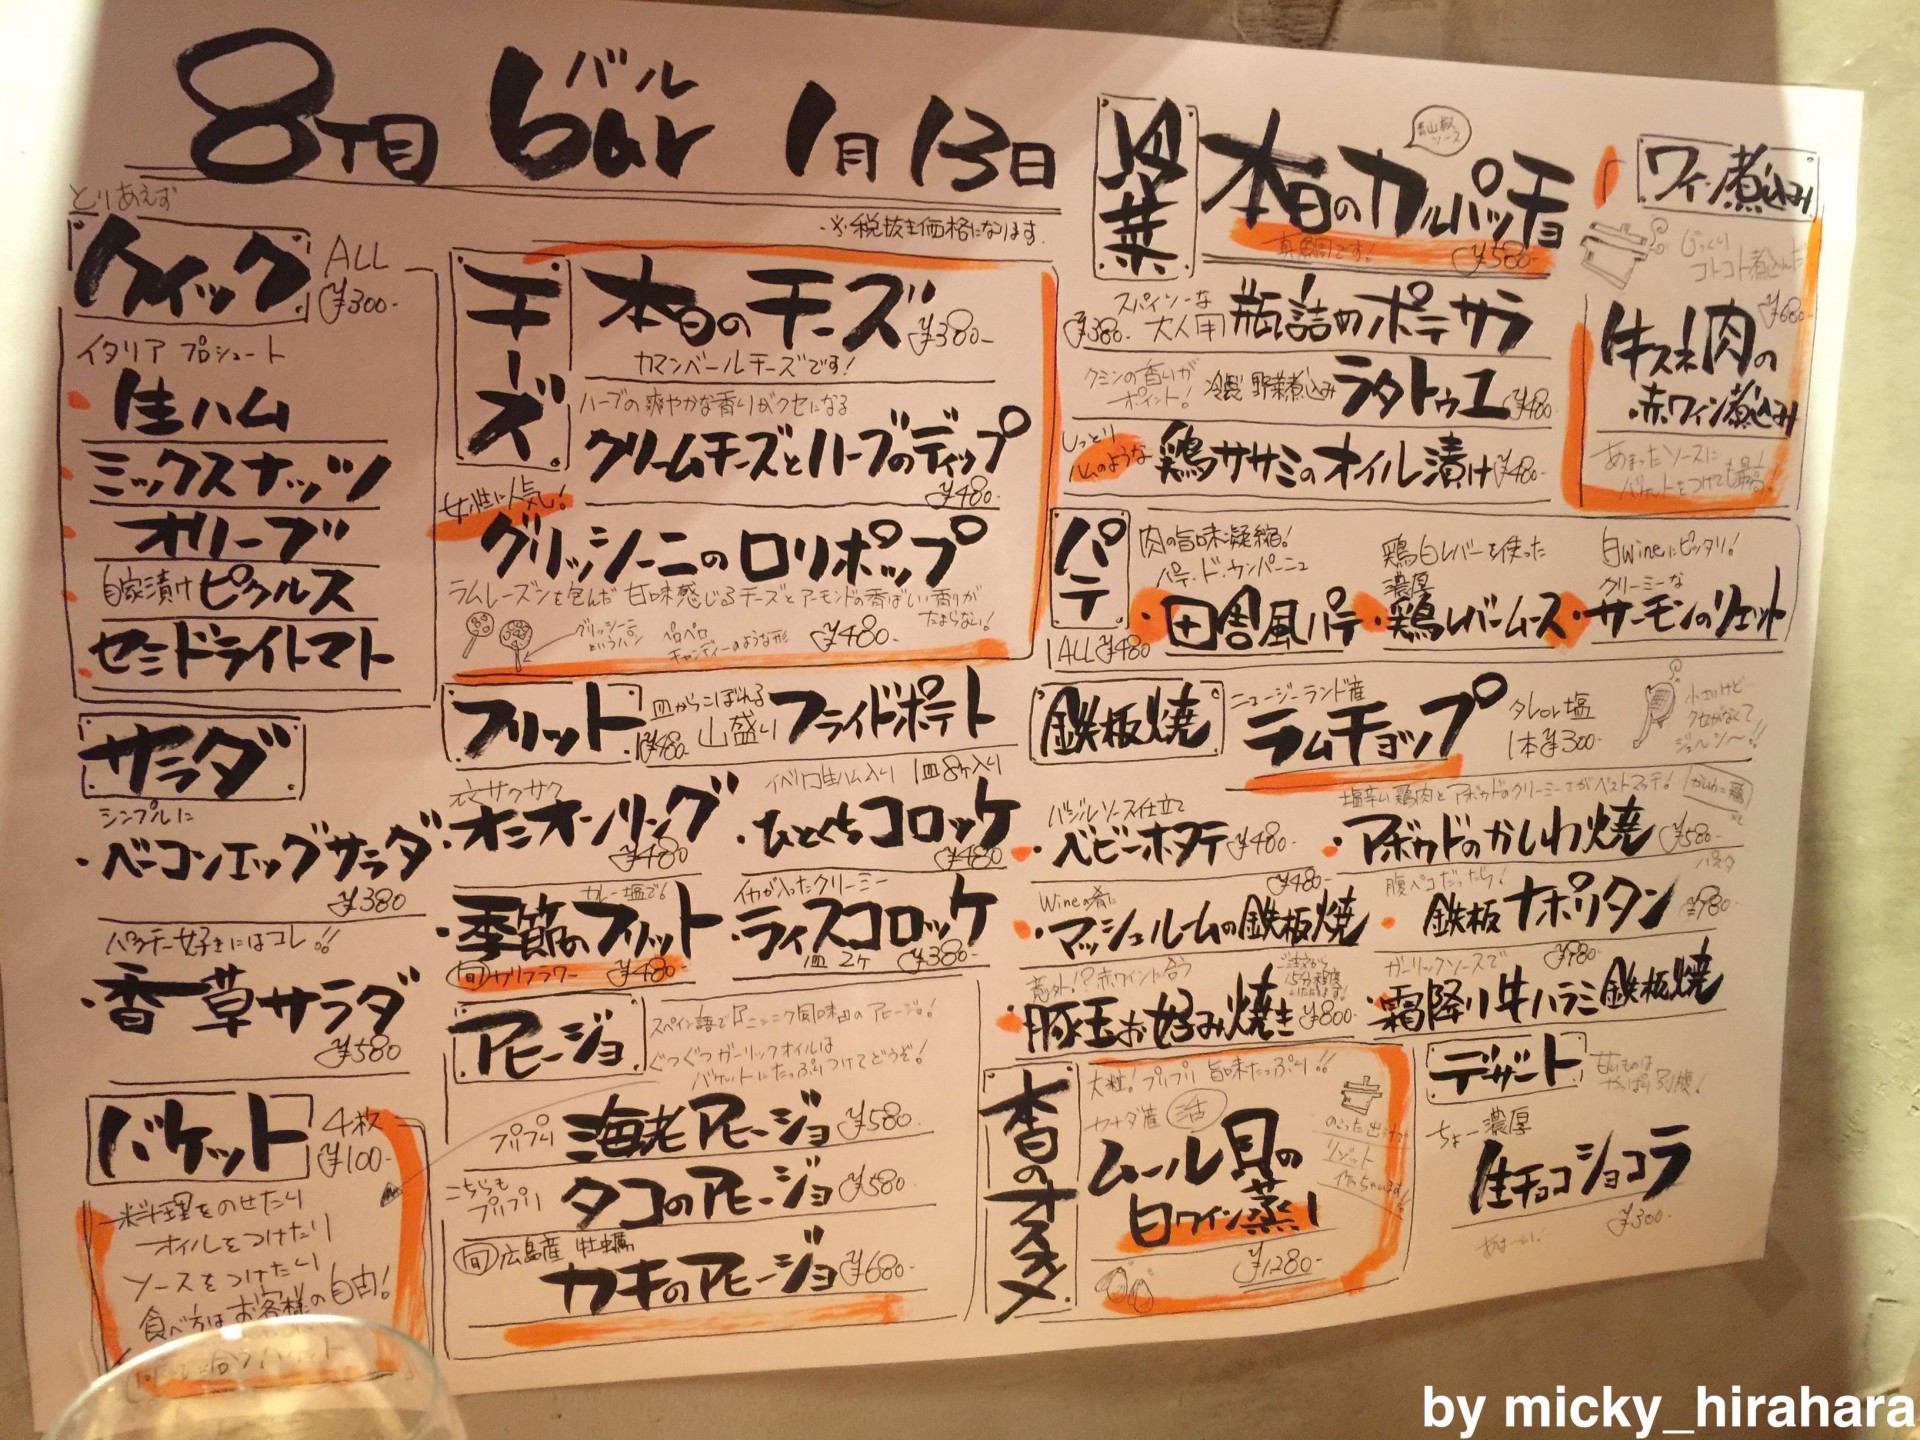 8丁目 bar バル 1月13日
※税抜き価格になります
とりあえず
クイック
ALL
¥300-
イタリア プロシュート
生ハム
ミックスナッツ
オリーブ
自家漬けピクルス
セミドライトマト
サラダ
シンプルに
・ベーコンエッグサラダ
¥380
パクチー女子好きにはコレ!!
・香草サラダ
¥580
バケット
4枚
¥100-
料理をのせたり
オイルをつけたり
ソースをつけたり
食べ方はお客様の自由!
チーズ
本日のチーズ
¥380-
カマンベールチーズです!
ハーブの爽やかな香りがクセになる
クリームチーズとハーブのディップ
¥480-
女性に人気!
グリッシーニのロリポップ
ラムレーズンを包んだ 甘味感じるチーズとアーモンドの香ばしい香りが
たまらない!
グリッシーニ
というパン
ペロペロ
キャンディーのような形
¥480-
フリット
皿からこぼれる
山盛り フライドポテト
¥480-
衣サクサク
・オニオンリング
¥480
イベリコ生ハム入り 1皿8ヶ入り
・ひとくちコロッケ
¥480
カレー塩で!
・季節のフリット
旬 カリフラワー ¥480-
イカが入ったクリーミー
・ライスコロッケ
1皿 2ヶ ¥380-
アヒージョ
スペイン語でニンニク風味のアヒージョ!
ぐつぐつガーリックオイルは
バケットにたっぷりつけてどうぞ!
プリプリ 海老アヒージョ ¥580-
こちらも
プリプリ タコのアヒージョ ¥580-
旬 広島産 牡蠣
カキのアヒージョ ¥680-
冷菜
本日のカルパッチョ
青山椒
ソース
真鯛です!
¥580-
スパイシーな
大人用 瓶詰めポテサラ
¥380-
クミンの香りが
ポイント!
冷製 野菜煮込み ラタトゥユ ¥480-
しっとり
ハムのような
鶏ササミのオイル漬け ¥480-
ワイン煮込み
じっくり
コトコト煮込んだ
¥680-
牛スネ肉の
赤ワイン煮込み
あまったソースに
バケットをつけても最高!
パテ
ALL ¥480
肉の旨味凝縮!
パテ・ド・カンパーニュ
・田舎風パテ
鶏白レバーを使った
濃厚
・鶏レバームース
白wineにピッタリ!
クリーミーな
・サーモンのリエット
鉄板焼
ニュージーランド産
ラムチョップ
タレor塩
1本¥300-
小さいけど
クセがなくて
ジューシ〜!!
バジルソース仕立て
・ベビーホタテ ¥480-
塩辛い鶏肉とアボカドのクリーミーさがベストマッチ!
かしわ=鶏
・アボカドのかしわ焼 ¥580-
Wineの肴に
¥480-
・マッシュルームの鉄板焼
腹ペコだったら!
パスタ
・鉄板ナポリタン
¥980-
意外!?赤ワインに合う
・豚玉お好み焼き ¥800-
ガーリックソースで
¥980-
・霜降り牛ハラミ鉄板焼
本日のオススメ
大粒! プリプリ 旨味たっぷり!!
カナダ産 活
ムール貝の
白ワイン蒸し
¥1280-
のこった出汁で
リゾット
作っちゃいます!
デザート
甘いものは
やっぱり別腹!
ちょー濃厚
生チョコショコラ
¥300-
by micky_hirahara